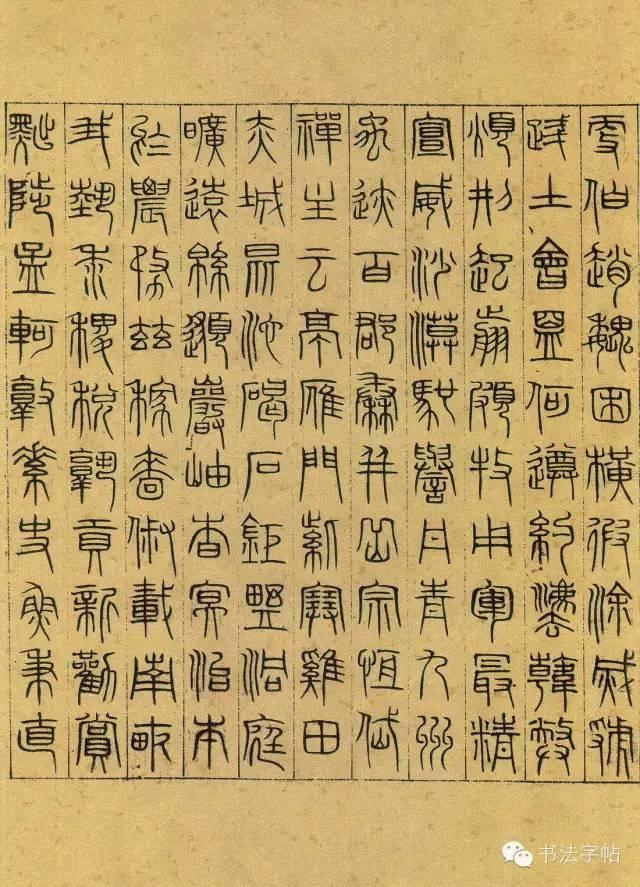 更伯趙魏困橫假涂滅虢
踐土會盟何遵約法韓弊
煩刑起翦頗牧用軍最精
宣威沙漠馳譽丹青九州
禹跡百郡秦并岳宗恒岱
禪主云亭雁門紫塞雞田
赤城昆池碣石鉅野洞庭
曠遠綿邈巖岫杳冥治本
於農務茲稼穡俶載南畝
我藝黍稷稅熟貢新勸賞
黜陟孟軻敦素史魚秉直
书法字帖